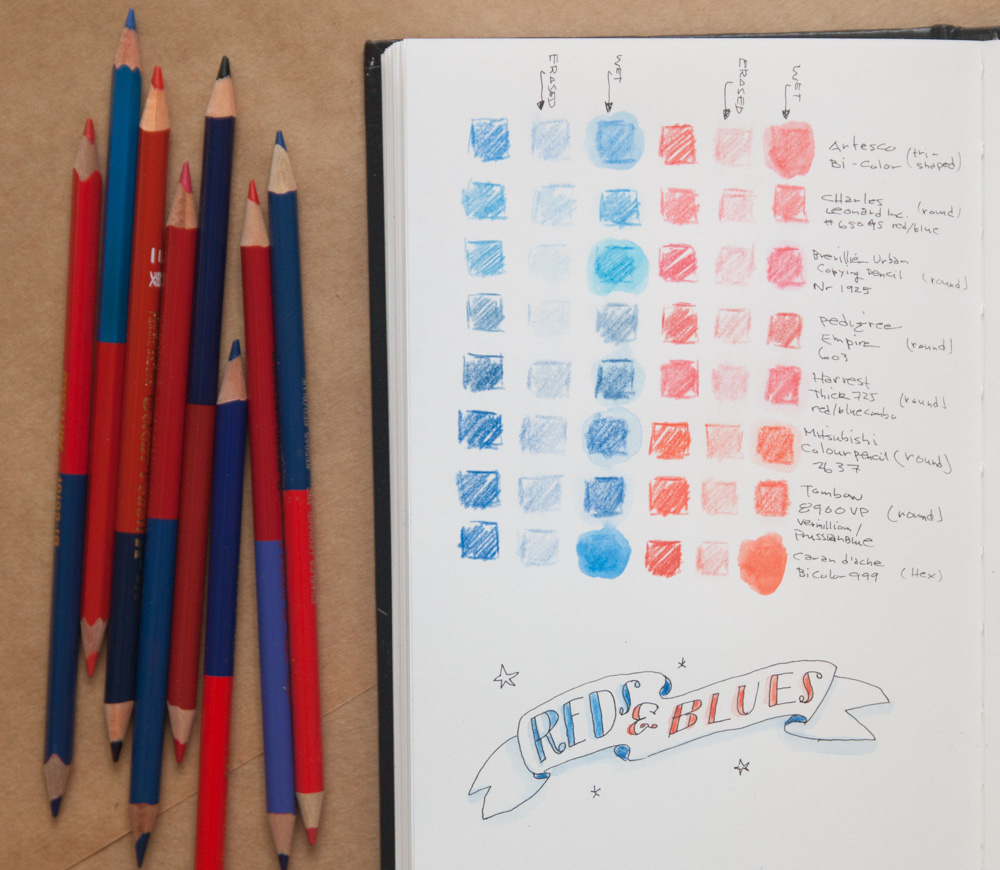 ERASED
WET
ERASED
WET
Artesco (tri-
Bi-Color shaped)
CHarles
Leonard Inc. (round)
red/blue
Copying Pencil (round)
Nr 1925
Pedigree
Empire (round)
603
Harvest
Thick 725 (round)
red/blue combo
Mitsubishi
Colour pencil (round)
2637
Tombow
8960VP (round)
vermillion/
PrussianBlue
Caran d'ache
BiColor 999 (Hex)
REDS & BLUES